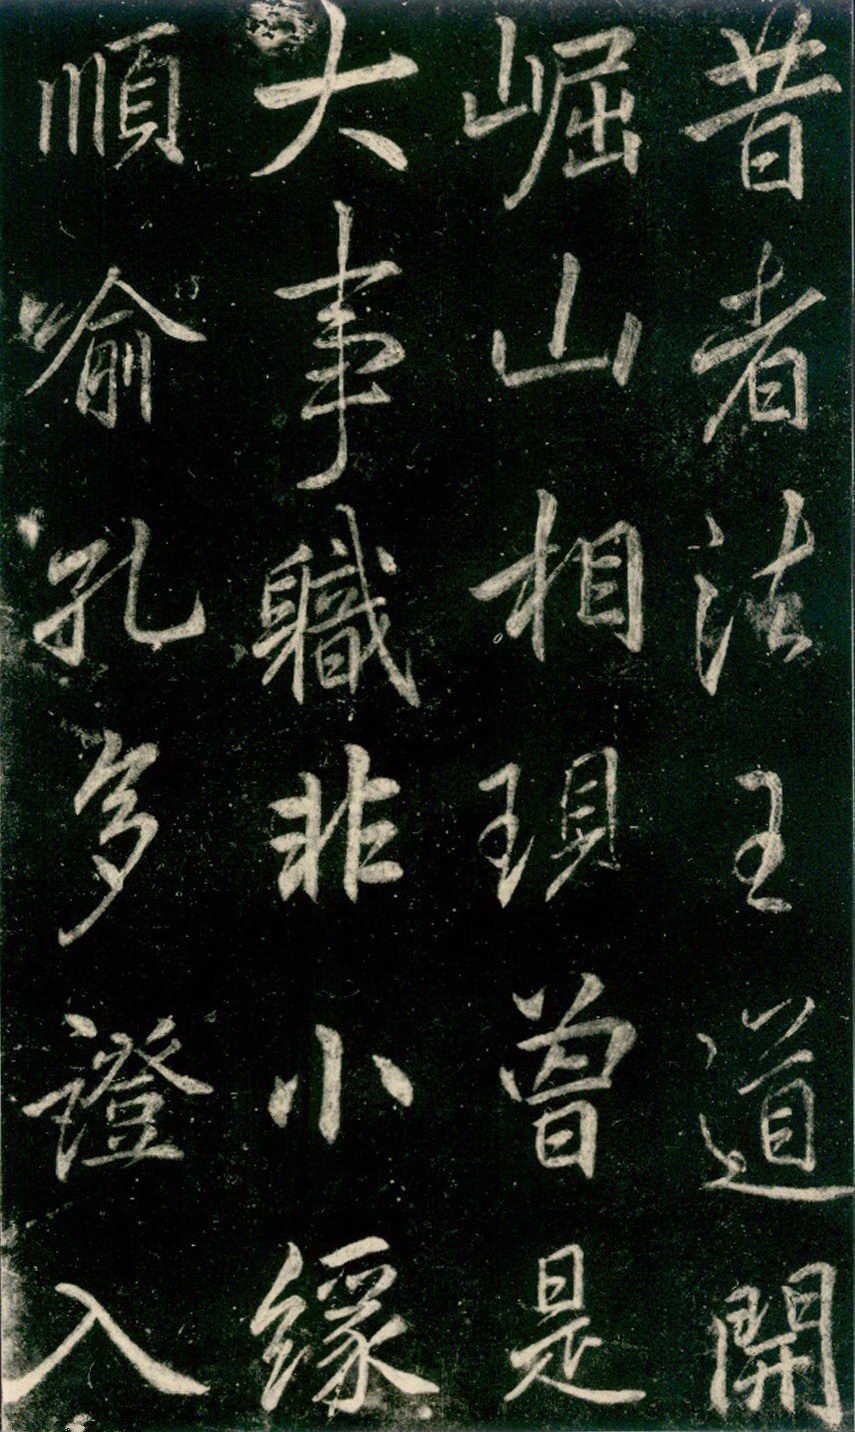 昔者法王道開
崛山相現曾是
大事軄非小緣
順喻孔多證入